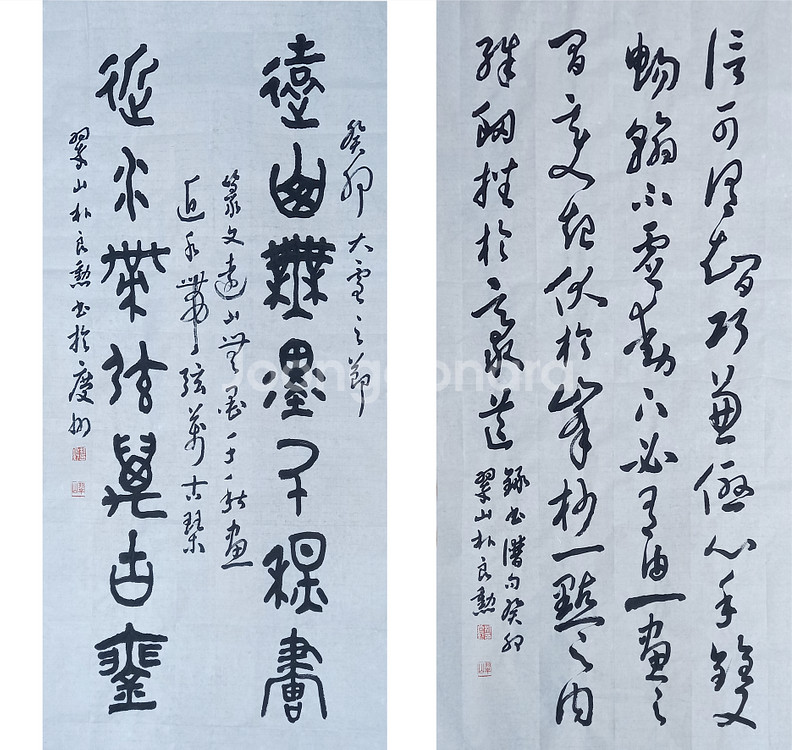 癸卯大雪之節
遠山無墨千秋畵
篆文遠山無墨千秋畵
近水無弦萬古琴
近水無弦萬古琴
翠山朴良勳書於慶州
信可謂智巧兼優心手雙
暢翰不虛動下必有由一畫之
間變起伏於峯杪一點之內
殊衄挫於毫芒
錄書譜句癸卯
翠山朴良勳